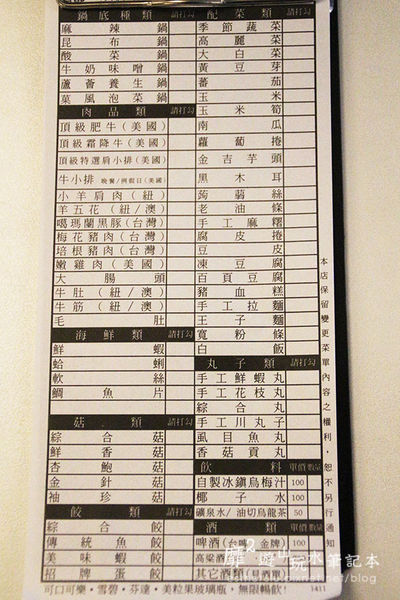 鍋底種類 請打勾
麻辣鍋
昆布鍋
酸菜鍋
牛奶味噌鍋
蘆薈養生鍋
菓風泡菜鍋
肉品類 請打勾
頂級肥牛(美國)
頂級霜降牛(美國)
頂級特選肩小排(美國)
牛小排 晚餐/例假日(美國)
小羊肩肉(紐)
羊五花(紐/澳)
噶瑪蘭黑豚(台灣)
梅花豬肉(台灣)
培根豬肉(台灣)
嫩雞肉(美國)
大腸頭
牛肚(紐/澳)
牛筋(紐/澳)
毛肚
海鮮類 請打勾
鮮蝦
蛤蜊
軟絲
鯛魚片
菇類 請打勾
綜合菇
鮮香菇
杏鮑菇
金針菇
袖珍菇
餃類 請打勾
綜合餃
傳統魚餃
美味蝦餃
招牌蛋餃
配菜類 請打勾
季節蔬菜
高麗菜
大白菜
黃豆芽
蕃茄
玉米
玉米筍
南瓜
蘿蔔捲
金吉芋頭
黑木耳
蒟蒻絲
老油條
手工麻糬
腐皮捲
豆皮
凍豆腐
百頁豆腐
豬血糕
手工拉麵
王子麵
寬粉條
白飯
丸子類 請打勾
手工鮮蝦丸
手工花枝丸
綜合丸
手工川丸子
虱目魚丸
香菇貢丸
飲料 單價 數量
自製冰鎮烏梅汁 100
椰子水 100
礦泉水/油切烏龍茶 50
酒類 單價 數量
啤酒(台灣金牌) 100
高粱酒
其它酒類
可口可樂・雪碧・芬達・美粒果玻璃瓶，無限暢飲!
1411
本店保留變更菜單內容之權利，恕不另行通知
遊山玩水筆記本